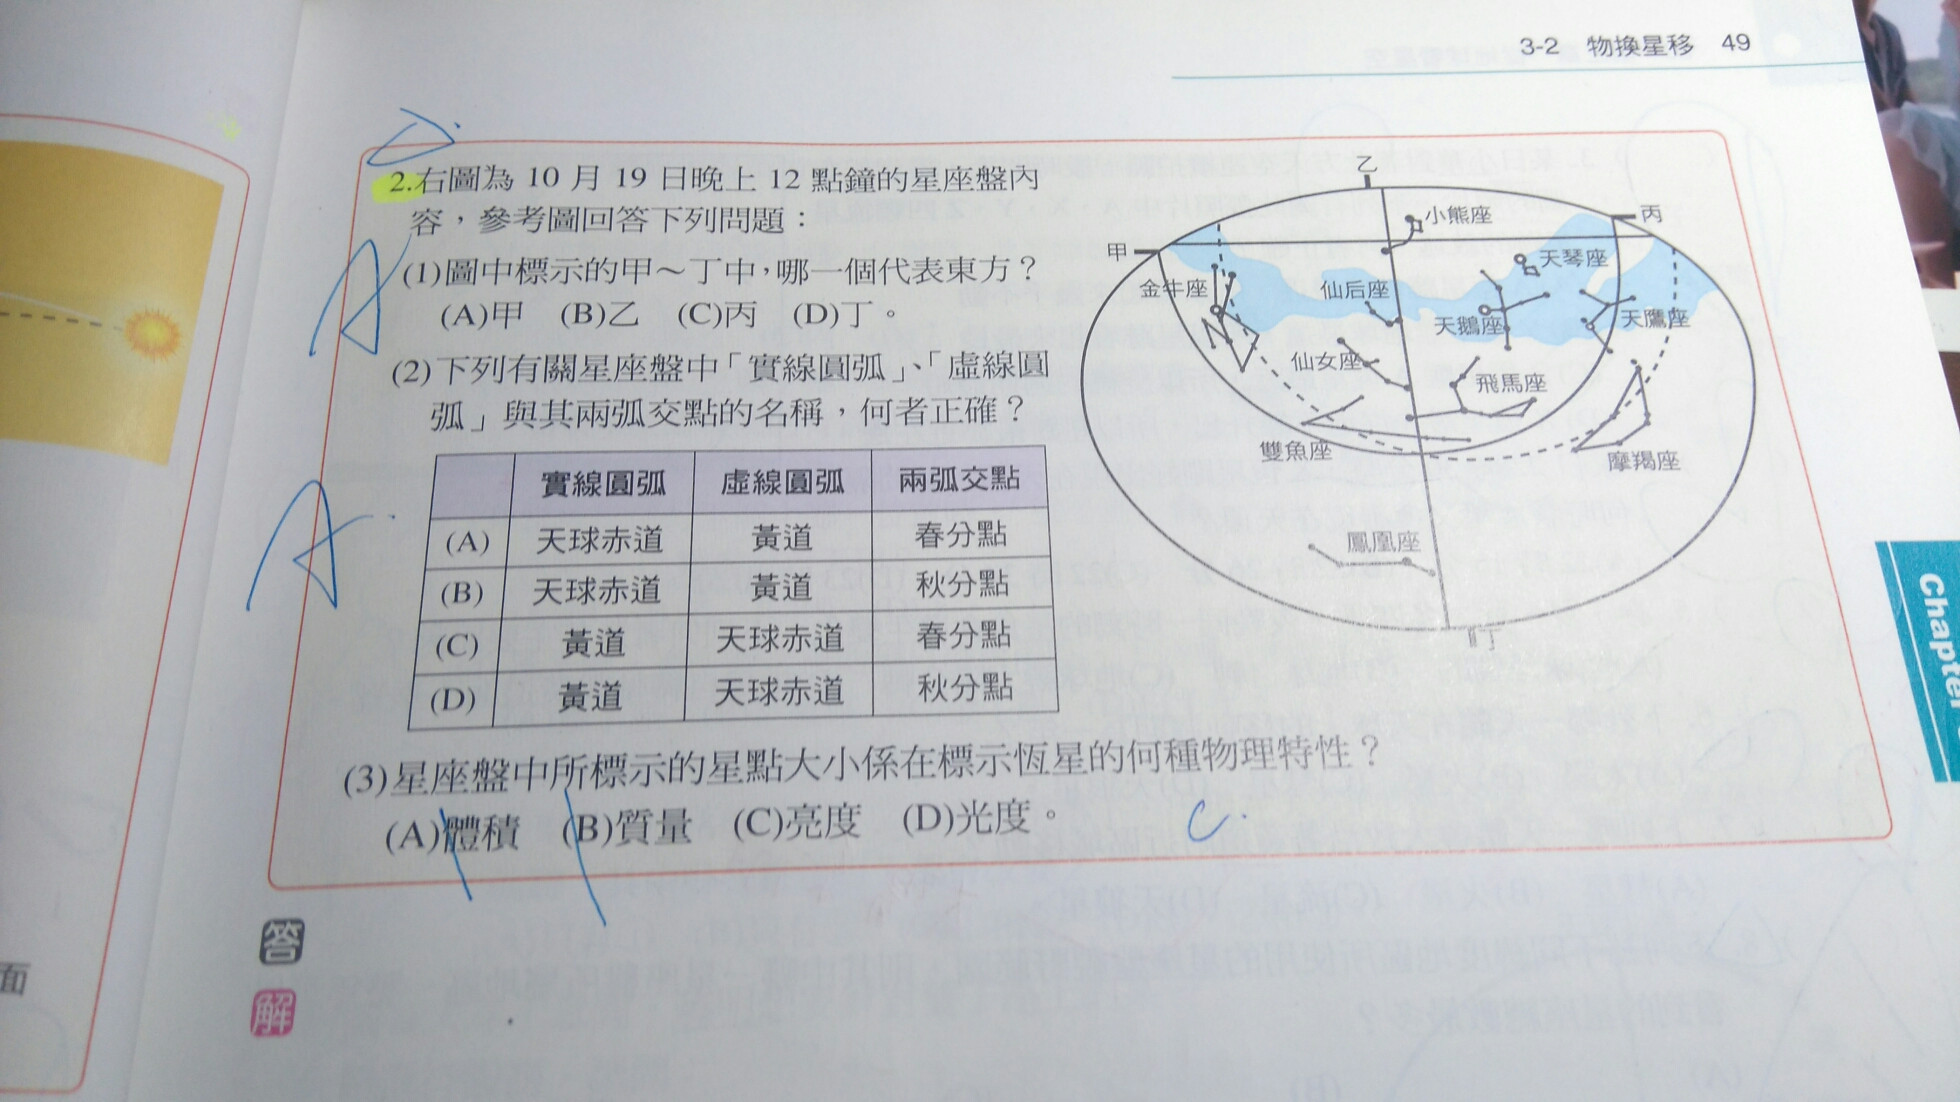 3-2 物換星移 49
2.右圖為 10 月 19 日晚上 12 點鐘的星座盤內
容，參考圖回答下列問題：
(1)圖中標示的甲～丁中，哪一個代表東方？
(A)甲 (B)乙 (C)丙 (D)丁。
A
(2)下列有關星座盤中「實線圓弧」、「虛線圓
弧」與其兩弧交點的名稱，何者正確？
A.
實線圓弧 虛線圓弧 兩弧交點
(A) 天球赤道 黃道 春分點
(B) 天球赤道 黃道 秋分點
(C) 黃道 天球赤道 春分點
(D) 黃道 天球赤道 秋分點
乙
小熊座
丙
甲
天琴座
金牛座
仙后座
天鵝座
天鷹座
仙女座
飛馬座
雙魚座
摩羯座
鳳凰座
丁
(3)星座盤中所標示的星點大小係在標示恆星的何種物理特性？
(A)體積 (B)質量 (C)亮度 (D)光度。
C.
答
解
面
Chapter